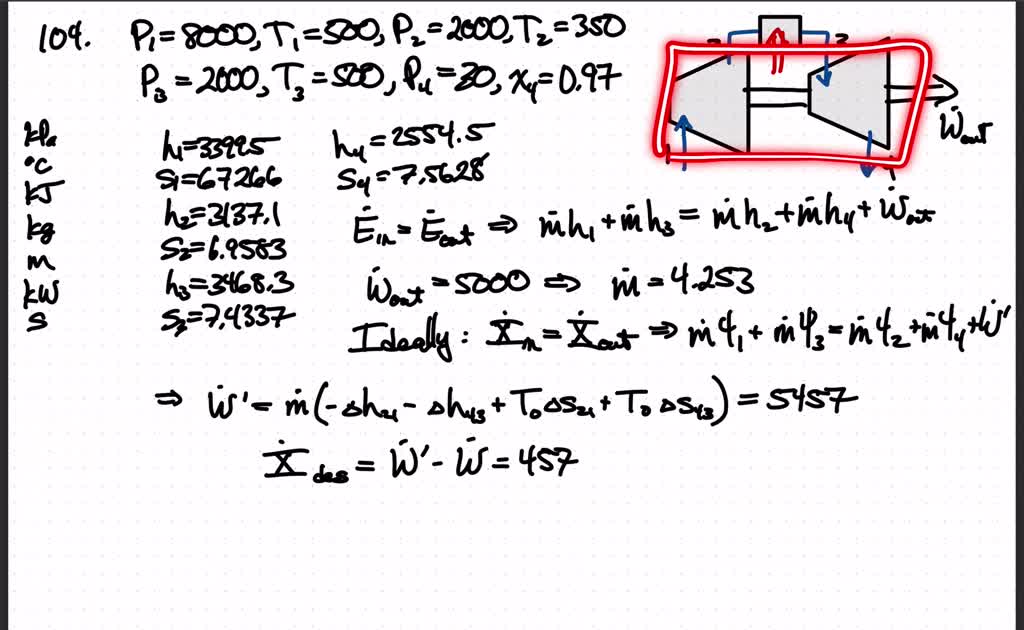 109. P₁=8000, T₁=500, P₂=2000, T₂=350
P₃=2000, T₃=500, P₄=30, x₄=0.97
kPa
°C
kJ
kg
m
kW
s
h₁=3399.5
s₁=6.7266
h₂=3137.1
s₂=6.9583
h₃=3468.3
s₃=7.4337
h₄=2554.5
s₄=7.5628
Ė_in = Ė_out ⇒ ṁh₁+ṁh₃ = ṁh₂+ṁh₄+Ẇ_out
Ẇ_out = 5000 ⇒ ṁ = 4.253
Ideally: Ẋ_in = Ẋ_out ⇒ ṁψ₁+ṁψ₃=ṁψ₂+ṁψ₄+Ẇ'
⇒ Ẇ' = ṁ(-Δh₂₁-Δh₄₃+T₀Δs₂₁+T₀Δs₄₃) = 5457
Ẋ_des = Ẇ'-Ẇ = 457
Ẇ_out